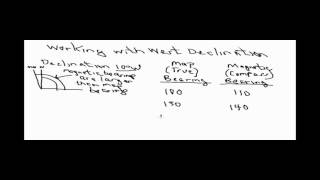 Working with West Declination
Declination 10°W
magnetic bearings
are larger
than map
bearing
Map
(True)
Bearing
Magnetic
(Compass)
Bearing
100 110
130 140